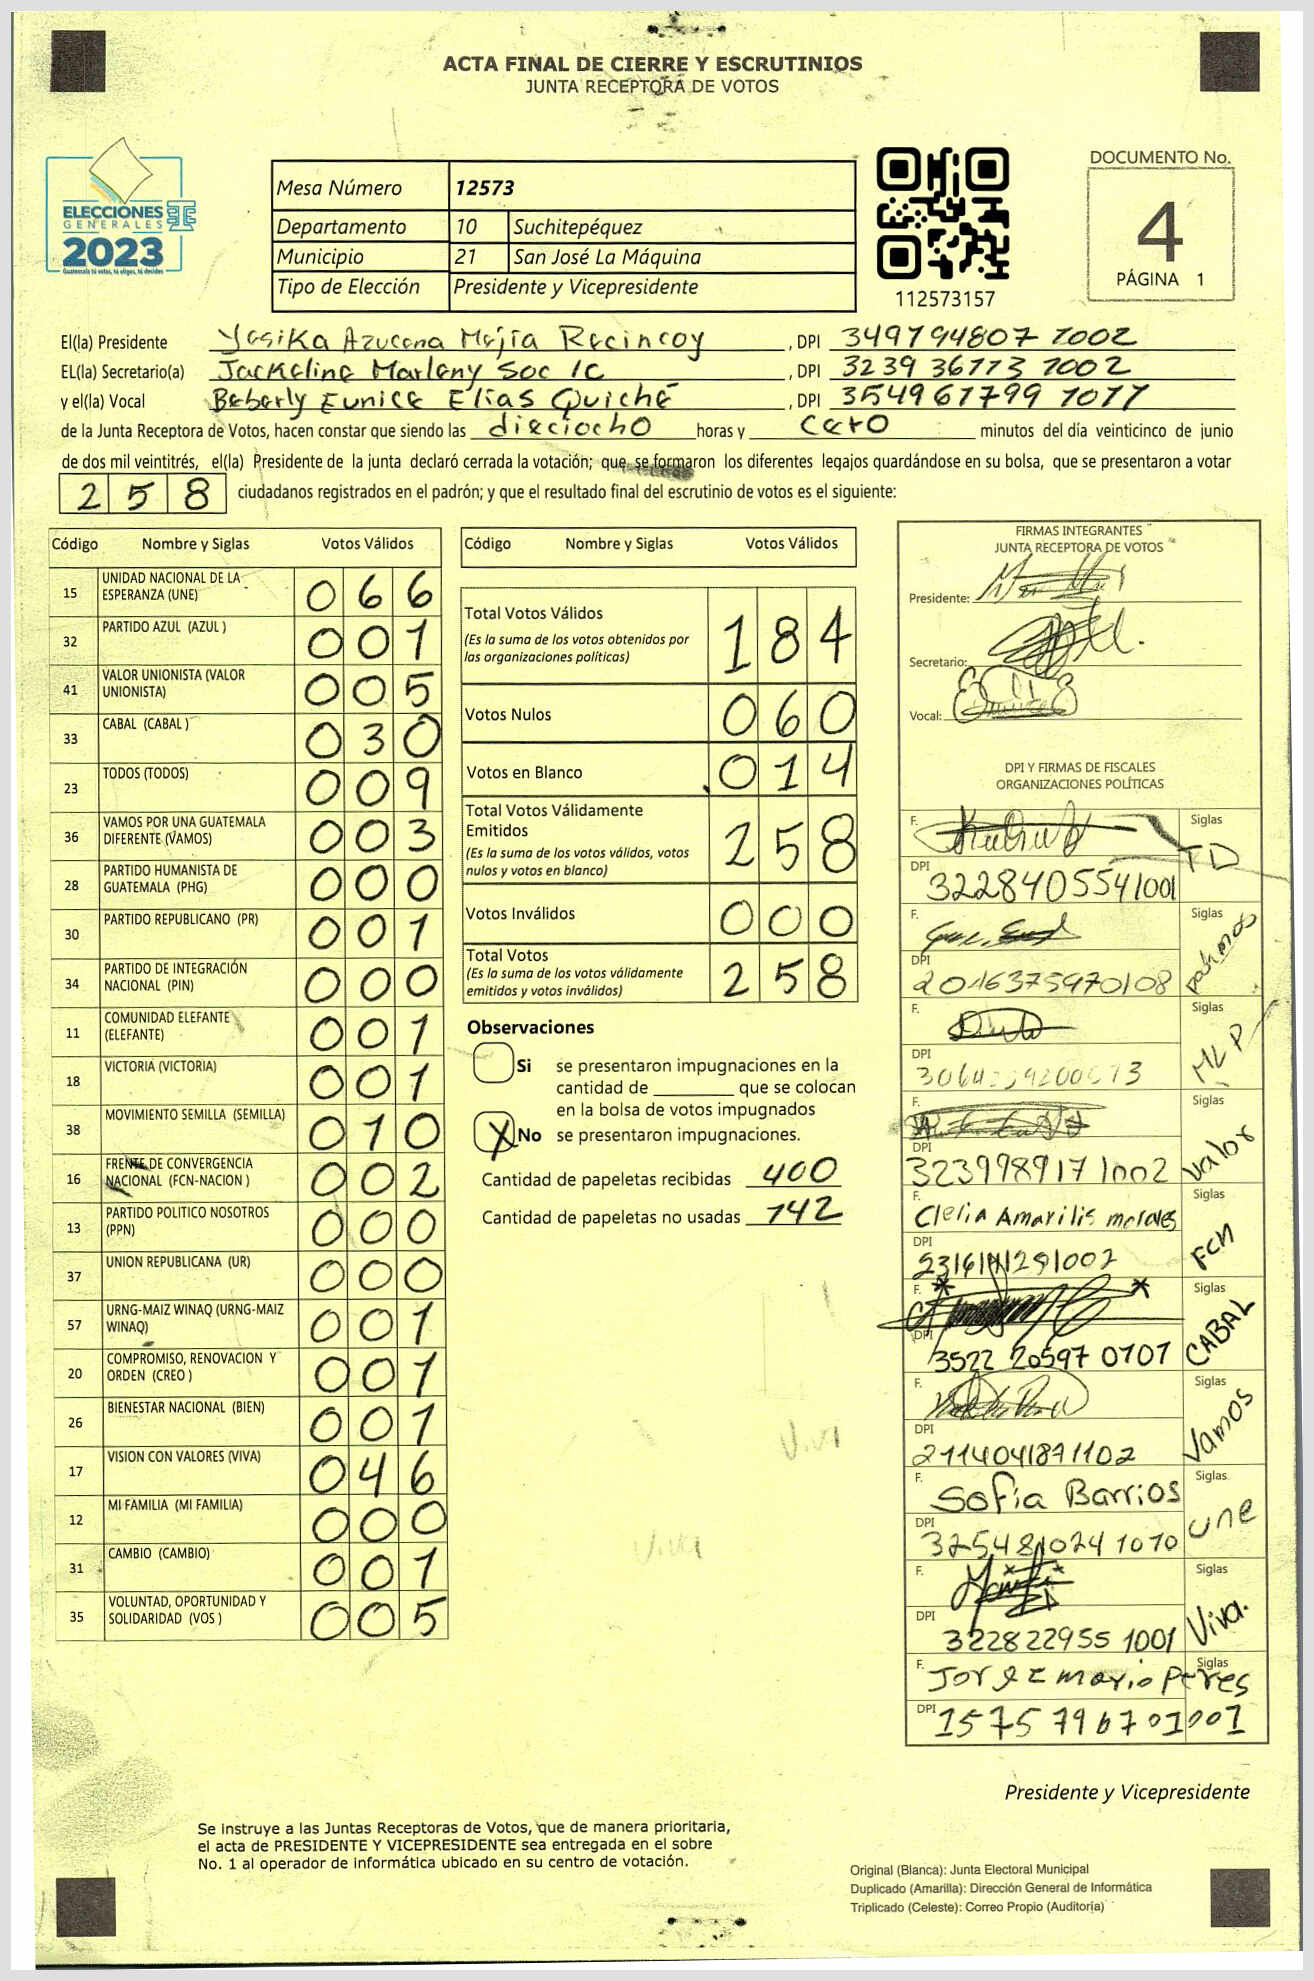 ACTA FINAL DE CIERRE Y ESCRUTINIOS
JUNTA RECEPTORA DE VOTOS
ELECCIONES
GENERALES
2023
Guatemala tú votas, tú eliges, tú decides
Mesa Número 12573
Departamento 10 Suchitepéquez
Municipio 21 San José La Máquina
Tipo de Elección Presidente y Vicepresidente
112573157
DOCUMENTO No.
4
PÁGINA 1
El(la) Presidente Yesika Azucena Mejía Recincoy, DPI 349794807 1002
EL(la) Secretario(a) Jackeline Marleny Soc IC, DPI 3239 36773 1002
y el(la) Vocal Beberly Eunice Elías Quiché, DPI 354961799 1017
de la Junta Receptora de Votos, hacen constar que siendo las dieciocho horas y cero minutos del día veinticinco de junio
de dos mil veintitrés, el(la) Presidente de la junta declaró cerrada la votación; que se formaron los diferentes legajos guardándose en su bolsa, que se presentaron a votar
258 ciudadanos registrados en el padrón; y que el resultado final del escrutinio de votos es el siguiente:
Código Nombre y Siglas Votos Válidos
15 UNIDAD NACIONAL DE LA ESPERANZA (UNE) 066
32 PARTIDO AZUL (AZUL ) 001
41 VALOR UNIONISTA (VALOR UNIONISTA) 005
33 CABAL (CABAL ) 030
23 TODOS (TODOS) 009
36 VAMOS POR UNA GUATEMALA DIFERENTE (VAMOS) 003
28 PARTIDO HUMANISTA DE GUATEMALA (PHG) 000
30 PARTIDO REPUBLICANO (PR) 001
34 PARTIDO DE INTEGRACIÓN NACIONAL (PIN) 000
11 COMUNIDAD ELEFANTE (ELEFANTE) 001
18 VICTORIA (VICTORIA) 001
38 MOVIMIENTO SEMILLA (SEMILLA) 010
16 FRENTE DE CONVERGENCIA NACIONAL (FCN-NACION ) 002
13 PARTIDO POLITICO NOSOTROS (PPN) 000
37 UNION REPUBLICANA (UR) 000
57 URNG-MAIZ WINAQ (URNG-MAIZ WINAQ) 001
20 COMPROMISO, RENOVACION Y ORDEN (CREO ) 001
26 BIENESTAR NACIONAL (BIEN) 001
17 VISION CON VALORES (VIVA) 046
12 MI FAMILIA (MI FAMILIA) 000
31 CAMBIO (CAMBIO) 001
35 VOLUNTAD, OPORTUNIDAD Y SOLIDARIDAD (VOS ) 005
Código Nombre y Siglas Votos Válidos
Total Votos Válidos 184
(Es la suma de los votos obtenidos por
las organizaciones políticas)
Votos Nulos 060
Votos en Blanco 014
Total Votos Válidamente
Emitidos 258
(Es la suma de los votos válidos, votos
nulos y votos en blanco)
Votos Inválidos 000
Total Votos 258
(Es la suma de los votos válidamente
emitidos y votos inválidos)
Observaciones
Si se presentaron impugnaciones en la
cantidad de ________ que se colocan
en la bolsa de votos impugnados
X No se presentaron impugnaciones.
Cantidad de papeletas recibidas 400
Cantidad de papeletas no usadas 142
Viví
Viví
FIRMAS INTEGRANTES
JUNTA RECEPTORA DE VOTOS
Presidente:
Secretario:
Vocal:
DPI Y FIRMAS DE FISCALES
ORGANIZACIONES POLÍTICAS
F. Siglas TD
DPI 3228405541001
F. Siglas
DPI 2016375970108
F. Siglas MLP
DPI
F. Siglas Valor
DPI 3239989171002
F. Clelia Amarilis morales Siglas FCN
DPI
F. Siglas CABAL
DPI 3522 20597 0101
F. Siglas Vamos
DPI 2114041871102
F. Sofia Barrios Siglas une
DPI 3254810241010
F. Siglas Viva.
DPI 322822955 1001
F. Jorge Mario Peres Siglas
DPI 1575 79670 1001
Presidente y Vicepresidente
Se instruye a las Juntas Receptoras de Votos, que de manera prioritaria,
el acta de PRESIDENTE Y VICEPRESIDENTE sea entregada en el sobre
No. 1 al operador de informática ubicado en su centro de votación.
Original (Blanca): Junta Electoral Municipal
Duplicado (Amarilla): Dirección General de Informática
Triplicado (Celeste): Correo Propio (Auditoría)